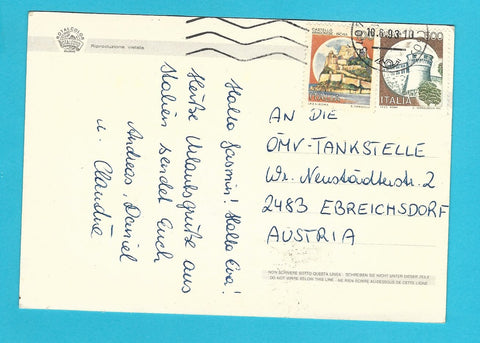 Riproduzione vietata
Hallo Jasmin! Hallo Eva!
Heiße Urlaubsgrüße aus
Italien sendet Euch
Andreas, Daniel
u. Claudia
10.6.93-18
500
ITALIA
AN DIE
ÖMV-TANKSTELLE
Wr. Neustädterstr. 2
2483 EBREICHSDORF
AUSTRIA
NON SCRIVERE SOTTO QUESTA LINEA - SCHREIBEN SIE NICHT UNTER DIESER ZEILE
DO NOT WRITE BELOW THIS LINE - NE RIEN ECRIRE AU-DESSOUS DE CETTE LIGNE